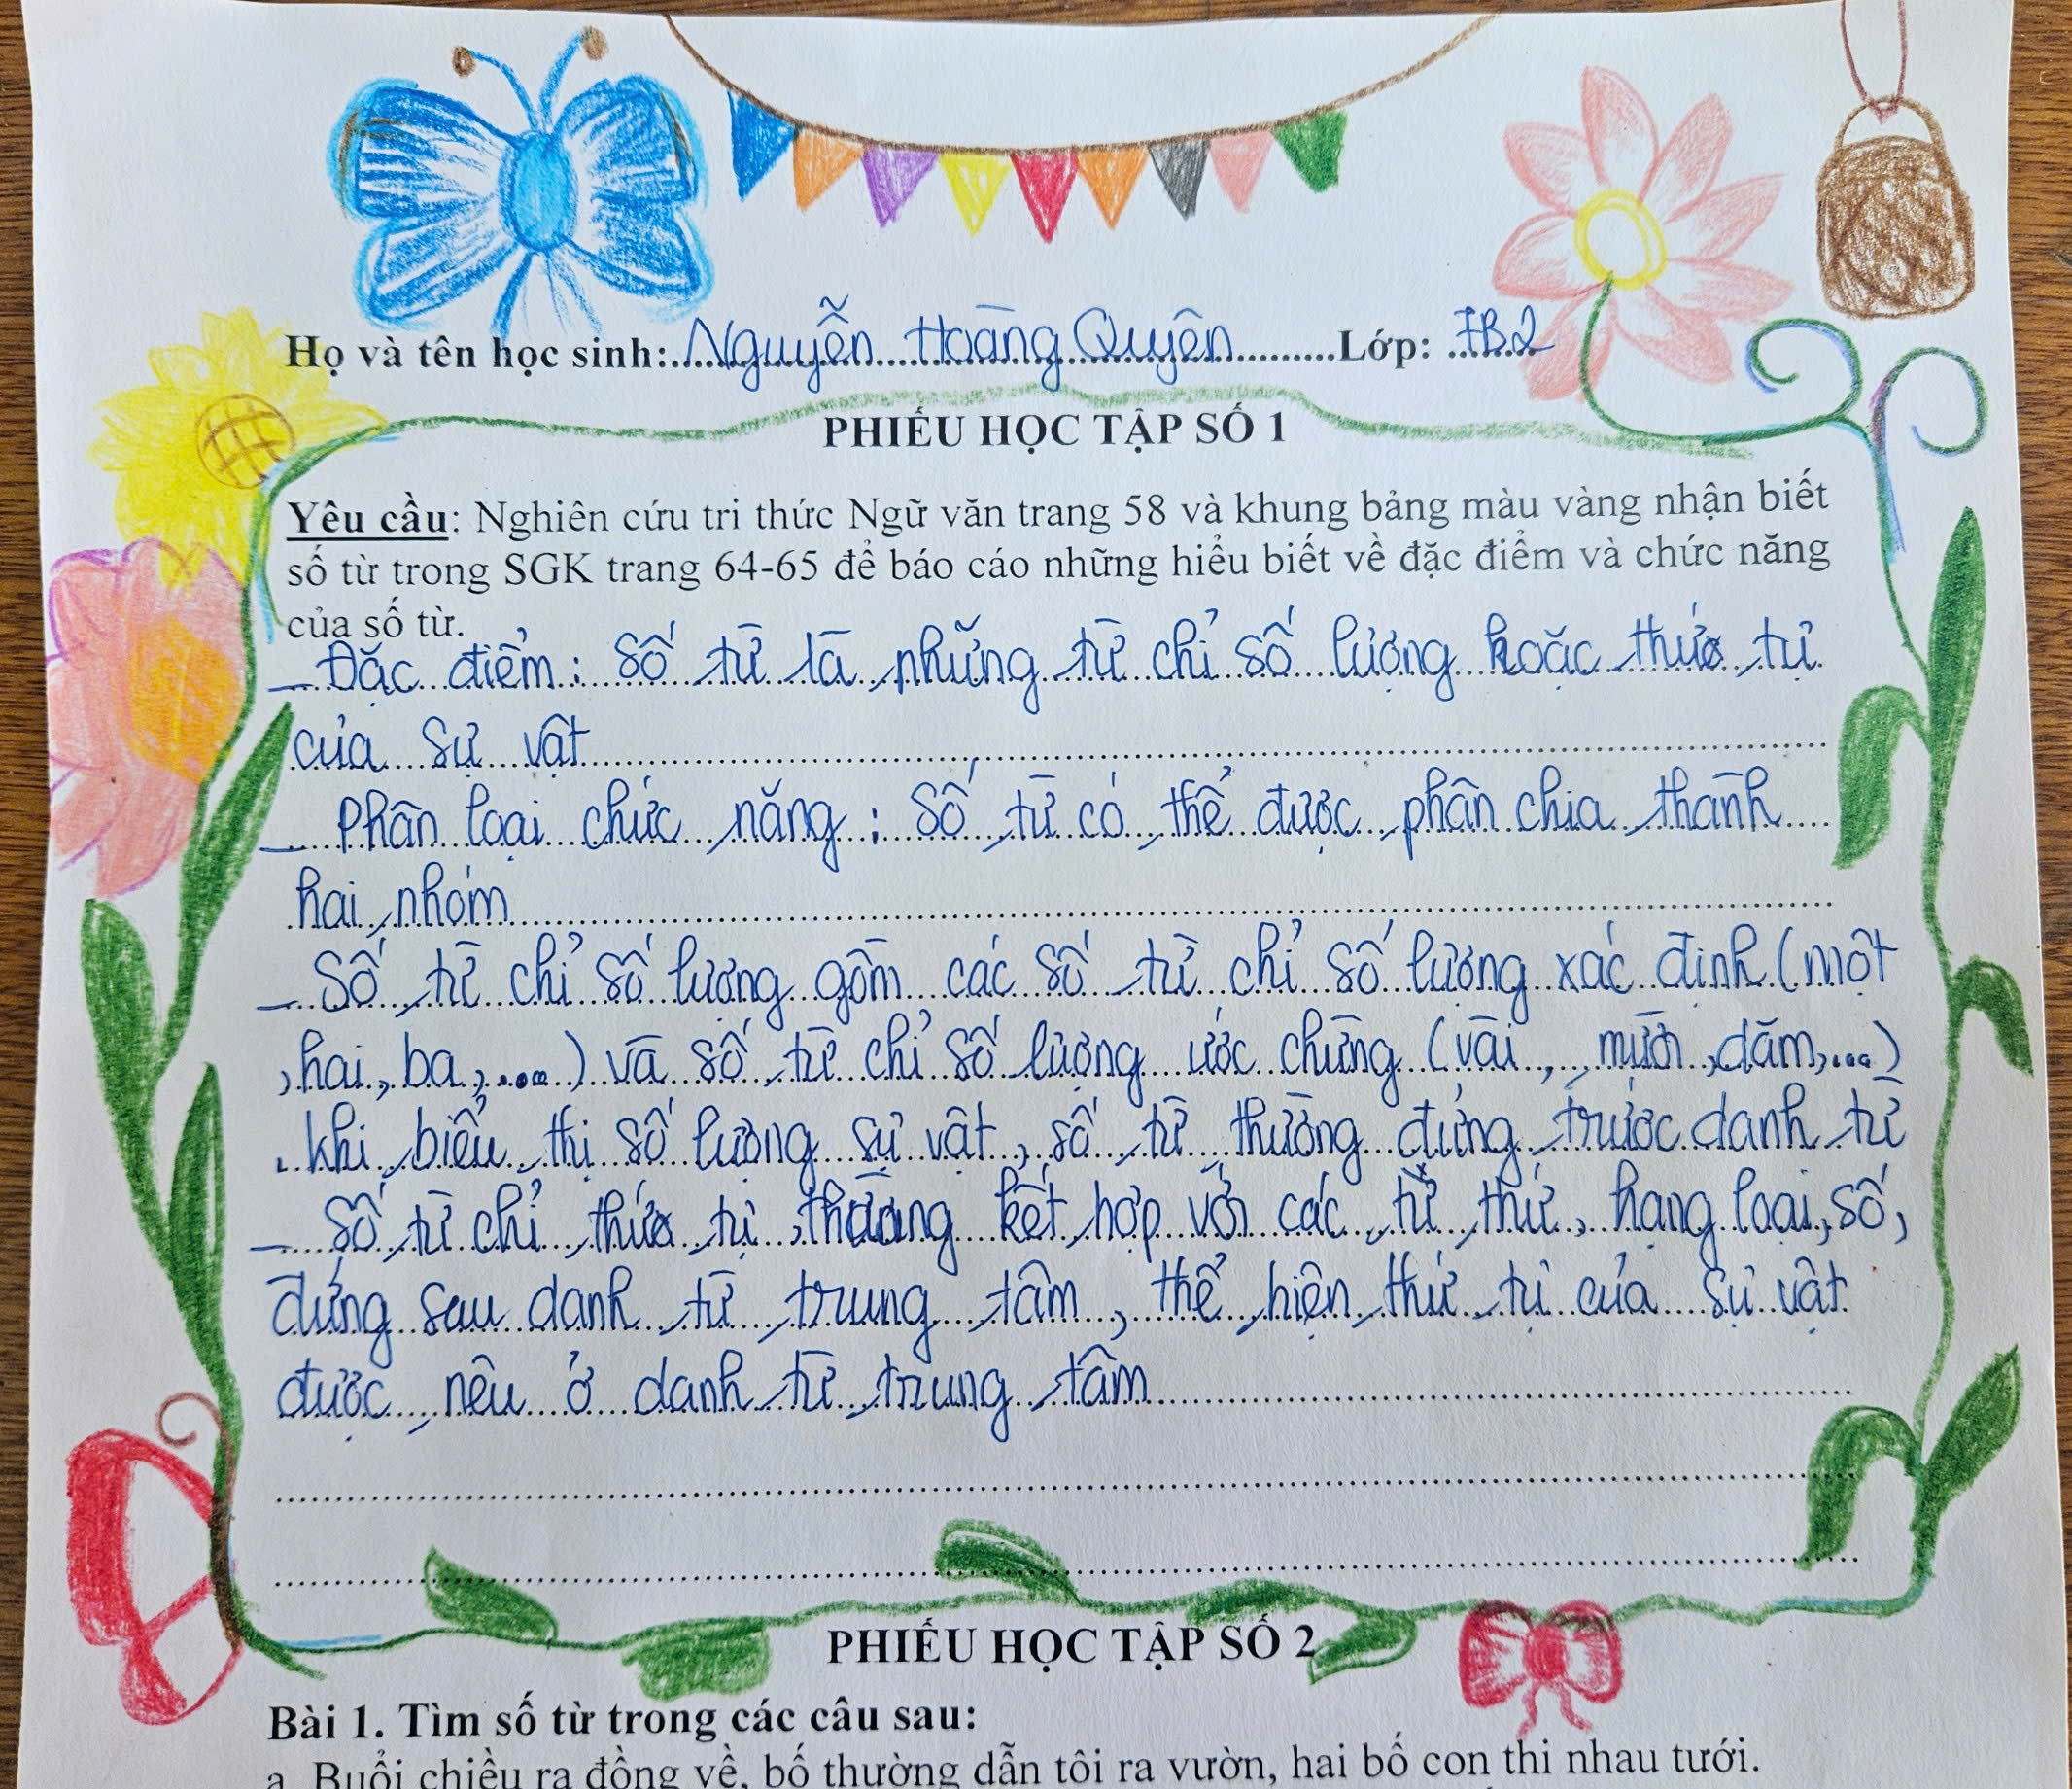 Họ và tên học sinh: Nguyễn Hoàng Quyên Lớp: 7B2
PHIẾU HỌC TẬP SỐ 1
Yêu cầu: Nghiên cứu tri thức Ngữ văn trang 58 và khung bảng màu vàng nhận biết
số từ trong SGK trang 64-65 để báo cáo những hiểu biết về đặc điểm và chức năng
của số từ.
_ Đặc điểm: số từ là những từ chỉ số lượng hoặc thứ tự
của sự vật
_ Phân loại chức năng: Số từ có thể được phân chia thành
hai nhóm
_ Số từ chỉ số lượng gồm các số từ chỉ số lượng xác định (một
, hai, ba, ....) và số từ chỉ số lượng ước chừng (vài, mười, dăm,...)
. khi biểu thị số lượng sự vật, số từ thường đứng trước danh từ
_ Số từ chỉ thứ tự thường kết hợp với các từ thứ, hạng loại, số,
đứng sau danh từ trung tâm, thể hiện thứ tự của sự vật
được nêu ở danh từ trung tâm
PHIẾU HỌC TẬP SỐ 2
Bài 1. Tìm số từ trong các câu sau:
a. Buổi chiều ra đồng về, bố thường dẫn tôi ra vườn, hai bố con thi nhau tưới.